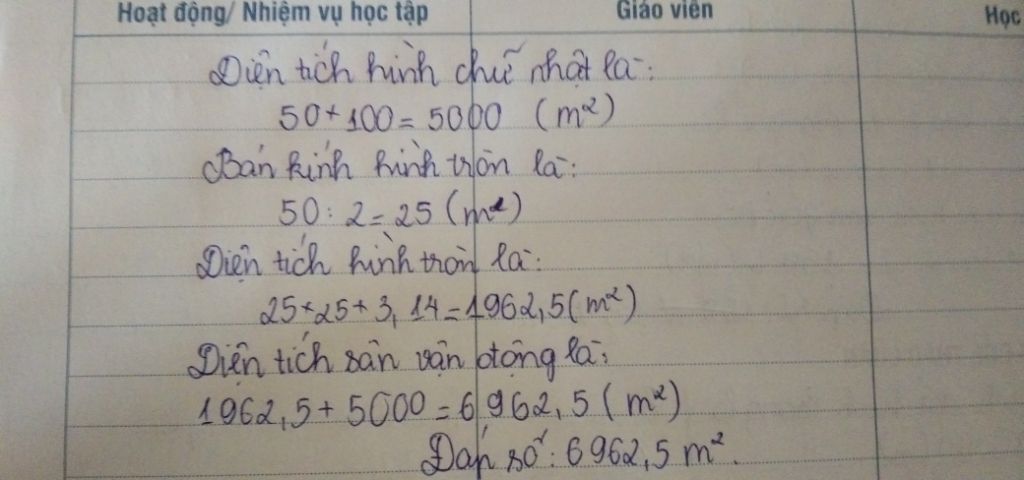 Hoạt động/ Nhiệm vụ học tập Giáo viên Học
Diện tích hình chữ nhật là:
50 × 100 = 5000 (m²)
Bán kính hình tròn là:
50 : 2 = 25 (m²)
Diện tích hình tròn là:
25 × 25 × 3,14 = 1962,5 (m²)
Diện tích sân vận động là:
1962,5 + 5000 = 6962,5 (m²)
Đáp số: 6962,5 m².